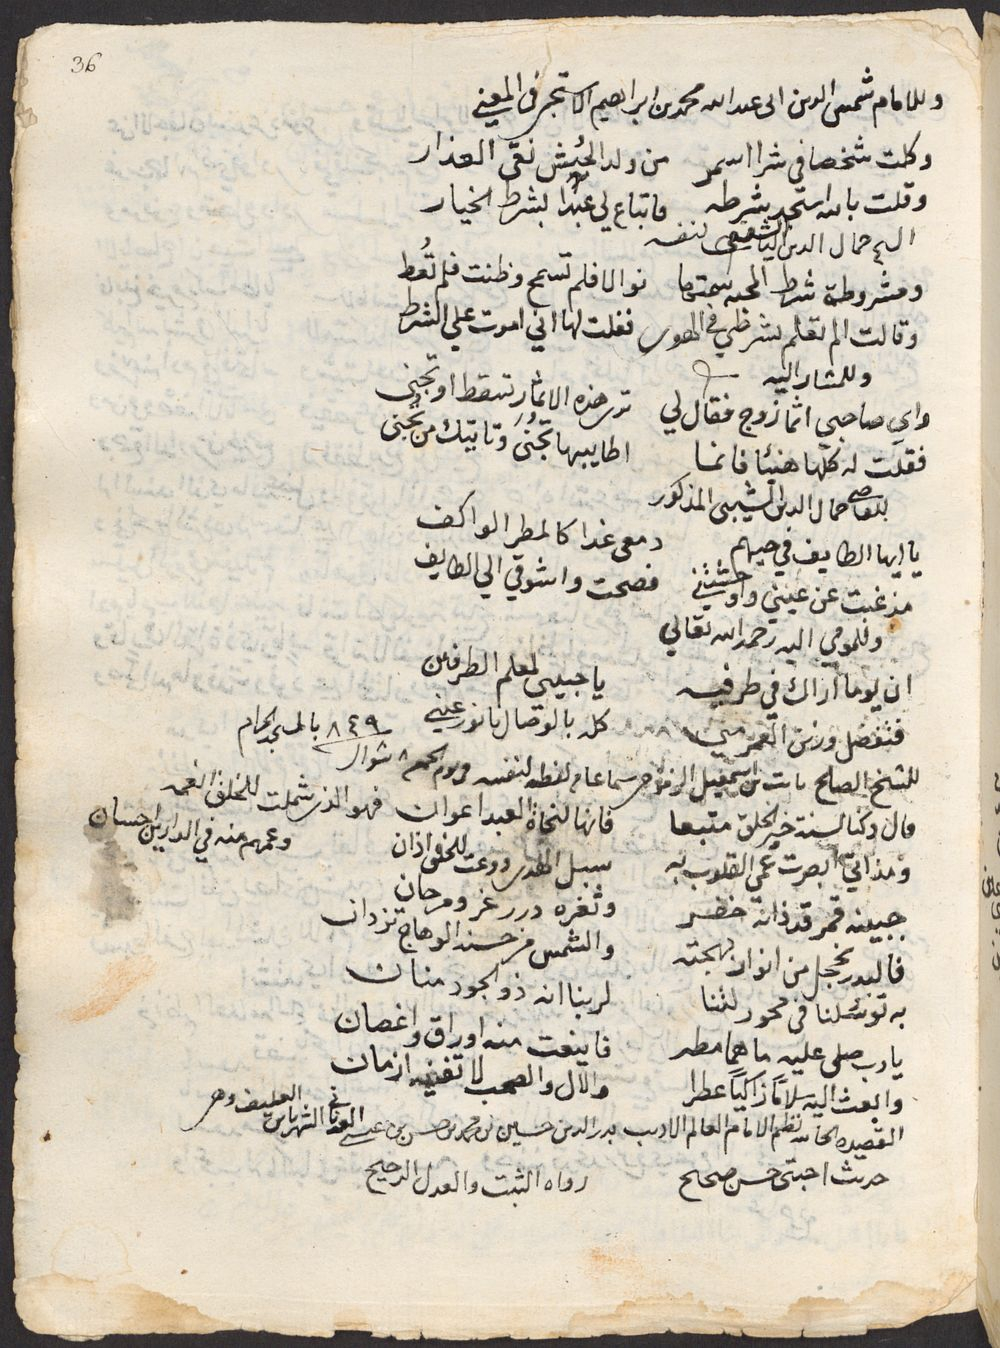 36
وللامام شمس الدين ابى عبد الله محمد بن ابراهيم في المعنى
وكلت شخصا في شرا اسمر من ولد الحبش نقى العذار
وقلت بالله استجد بشرطه فابتاع لي عبدا بشرط الخيار
جمال الدين الشيبى لنفسه
ومشروطة شرط المحبه سمتها نوالا فلم تسمح وظنت فلم تعط
وقالت الم تعلم بشرطي في الهوى فقلت لها اني اموت علي الشرط
وللمشار اليه
واي صاحبي اثمار زوج فقال لي ترى هذه الاثمار تسقط او تجنى
فقلت له كلها هنيئا فانما اطايبها تجنى وتاتيك من تجنى
للقاضى جمال الدين الشيبى المذكور
يا ايها الطايف في حيهم دمعى غدا كالمطر الواكف
مذ غبت عن عيني واوحشتني فصحت واشوقي الي الطايف
وللمومي اليه رحمه الله تعالي
ان يوما اراك في طرفيه يا حبيبي لمعلم الطرفين
فتفضل وزين العمر مني كله بالوصال يا نور عيني
للشيخ الصالح بن اسمعيل سماعا من لفظه لنفسه في يوم الجمعه ٨ شوال ٨٤٩ بالمسجد الحرام
قال وكنا لسنة خير الخلق متبعا فانها لنجاة العبد اعوان
فهو الذي شملت للخلق انعمه وعمهم منه في الدارين احسان
ومذ اتى ابصرت عمي القلوب به سبل الهدى ووعت للخلق اذان
جبينه قمر قد زانه خفر وثغره درر غر ومرجان
فالبدر يخجل من انوار بهجته والشمس من حسنه الوهاج تزدان
به توسلنا في محو زلتنا لربنا انه ذو الجود منان
يا رب صلى عليه ما هما مطر فاينعت منه اوراق واغصان
وابعث اليه سلاما زاكيا عطرا والال والصحب لا تفنيه ازمان
القصيده نظم الامام العالم الاديب بدر الدين حسين بن محمد بن حسن بن عيسى العليف وهى
حديث احبتي حسن صحيح رواه الثبت والعدل الرجيح